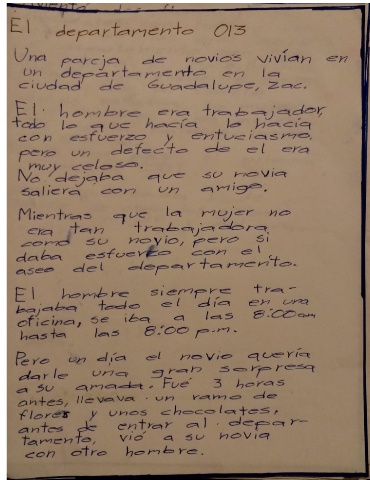 El departamento 013
Una pareja de novios vivían en
un departamento en la
ciudad de Guadalupe, Zac.
El hombre era trabajador,
todo lo que hacía lo hacía
con esfuerzo y entuciasmo
pero un defecto de el era
muy celoso.
No dejaba que su novia
saliera con un amigo.
Mientras que la mujer no
era tan trabajadora
como su novio, pero si
daba esfuerzo con el
aseo del departamento.
El hombre siempre tra-
bajaba todo el día en una
oficina, se iba a las 8:00am
hasta las 8:00 p.m.
Pero un día el novio quería
darle una gran sorpresa
a su amada. Fué 3 horas
antes, llevava un ramo de
flores y unos chocolates,
antes de entrar al depar-
tamento, vió a su novia
con otro hombre.